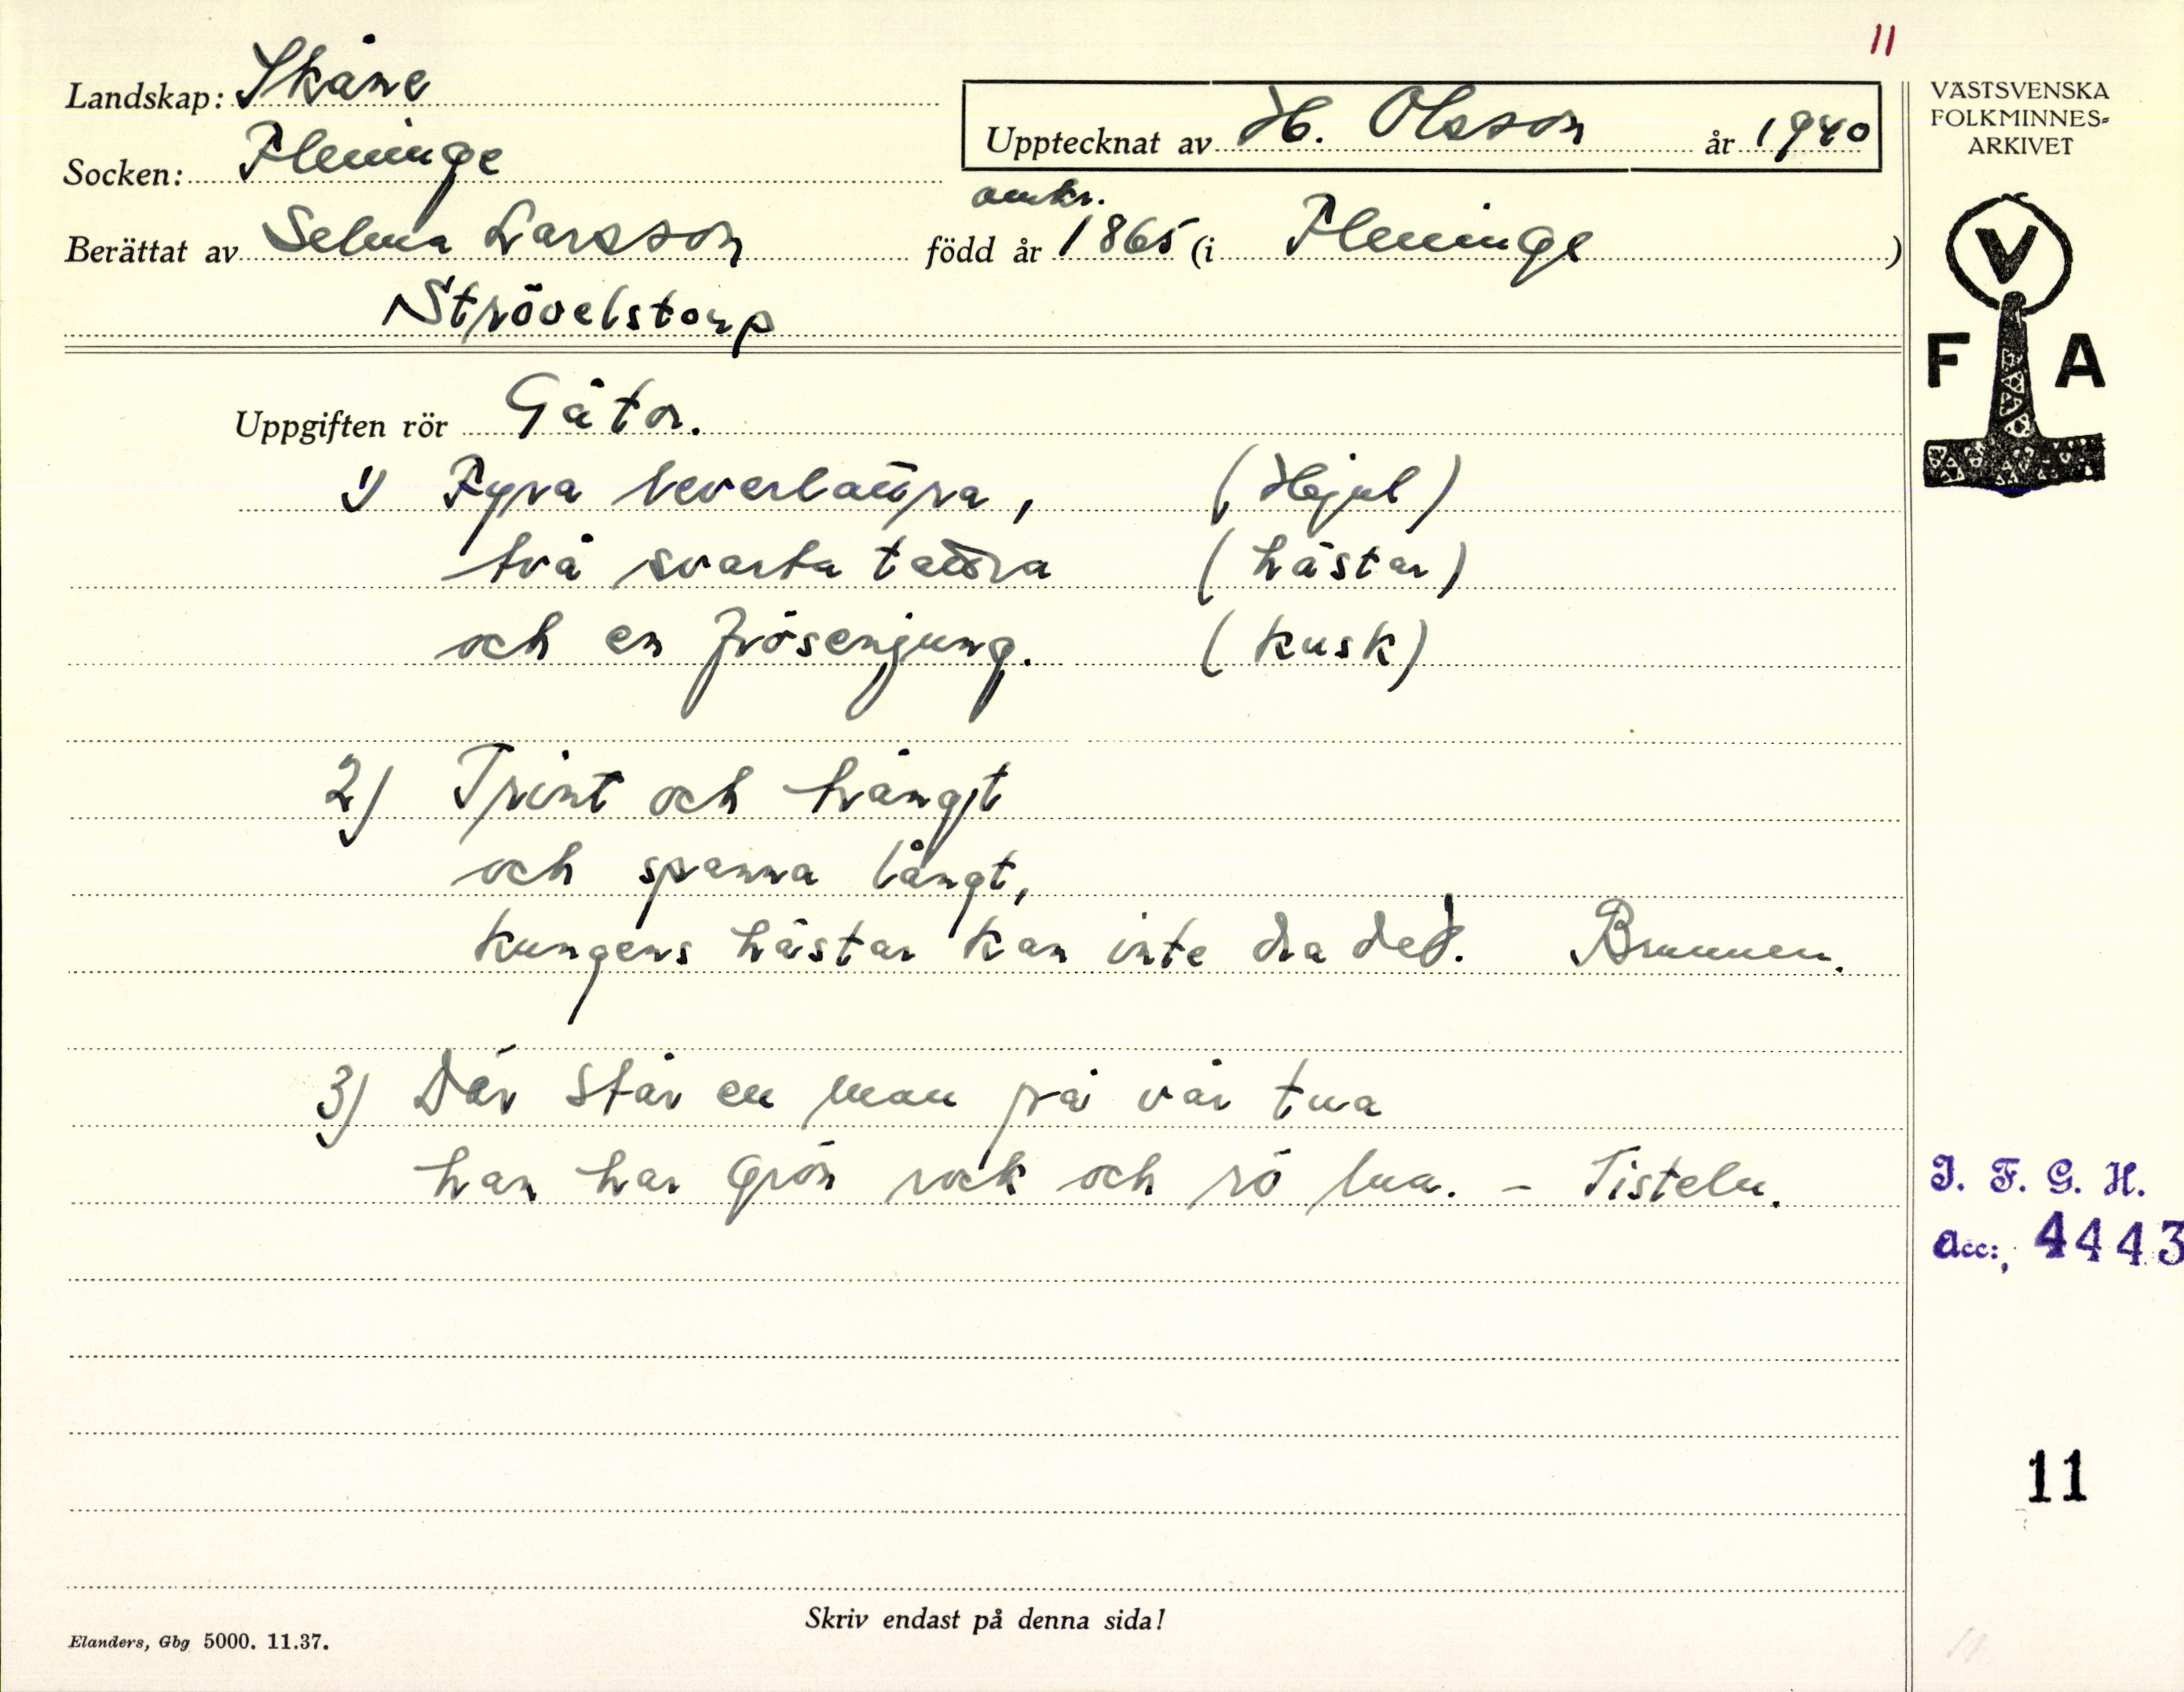 11
Landskap: Skåne
Upptecknat av H. Olsson år 1940
Socken: Fleninge
Berättat av Selma Larsson född år omkr. 1865 (i Fleninge)
Strövelstorp
Uppgiften rör Gåtor.
1) Fyra leverlaura, (Hjul)
två svarta taura (hästar)
och en frösenjung. (kusk)
2) Trint och trångt
och spanna långt,
kungens hästar kan inte dra det. Brunnen.
3) Där står en man på vår tua
han har grön rock och rö lua. - Tisteln.
Skriv endast på denna sida!
Elanders, Gbg 5000. 11.37.
VÄSTSVENSKA
FOLKMINNES-
ARKIVET
V
F A
I. F. G. H.
Acc: 4443
11